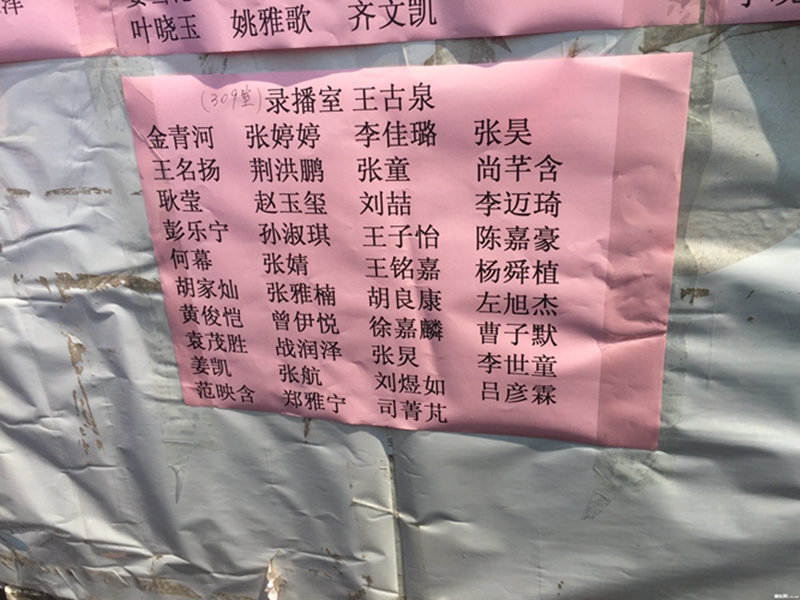 叶晓玉 姚雅歌 齐文凯
(309室) 录播室 王古泉
金青河 张婷婷 李佳璐 张昊
王名扬 荆洪鹏 张童 尚芊含
耿莹 赵玉玺 刘喆 李迈琦
彭乐宁 孙淑琪 王子怡 陈嘉豪
何幕 张婧 王铭嘉 杨舜植
胡家灿 张雅楠 胡良康 左旭杰
黄俊恺 曾伊悦 徐嘉麟 曹子默
袁茂胜 战润泽 张炅 李世童
姜凯 张航 刘煜如 吕彦霖
范映含 郑雅宁 司菁芃